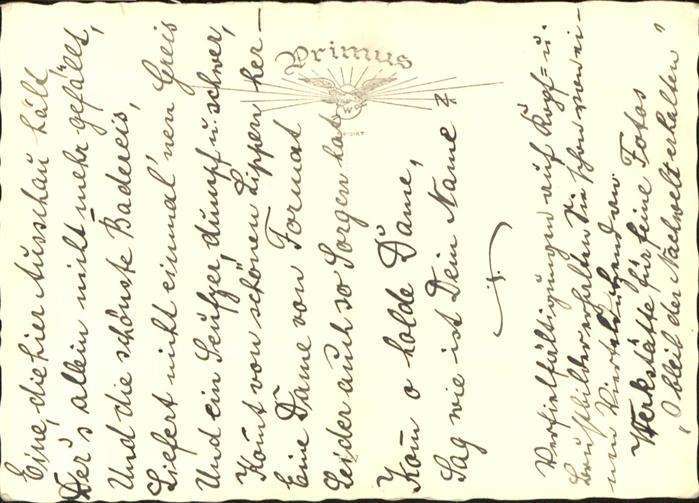 Primus
Eine, die hier Ausschau hält
Der's allein nicht mehr gefällt,
Und die schönste Badereis,
Liefert nicht einmal 'nen Greis
Und ein Seufzer, dumpf u. schwer,
Kom̄t von schönen Lippen her-
Eine Dame von Format
Leider auch so Sorgen hat
Kom̄ o holde Dame,
Sag wie ist Dein Name?
Vervielfältigungen auf Kopf= u.
Brustbilder erhalten Sie schon von ei-
nem Viertelduzend an
Werkstätte für feine Fotos
"O bleib der Nachwelt erhalten"